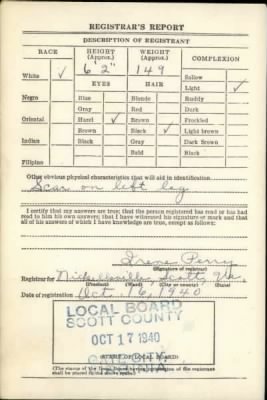 REGISTRAR'S REPORT
DESCRIPTION OF REGISTRANT
RACE
HEIGHT (Approx.)
WEIGHT (Approx.)
COMPLEXION
White ✓
6' 2"
149
Sallow
EYES
HAIR
Light ✓
Negro
Blue
Blonde
Ruddy
Gray
Red
Dark
Oriental
Hazel ✓
Brown
Freckled
Brown
Black ✓
Light brown
Indian
Black
Gray
Dark Brown
Bald
Black
Filipino
Other obvious physical characteristics that will aid in identification
Scar on left leg
I certify that my answers are true; that the person registered has read or has had
read to him his own answers; that I have witnessed his signature or mark and that
all of his answers of which I have knowledge are true, except as follows:
Irene Perry
(Signature of registrar)
Registrar for Nickelsville Scott Va.
(Precinct) (Ward) (City or county) (State)
Date of registration Oct. 16, 1940
LOCAL BOARD
SCOTT COUNTY
OCT 17 1940
GATE CITY, VA.
(STAMP OF LOCAL BOARD)
(The stamp of the Local Board having jurisdiction of the registrant
shall be placed in the above space.)